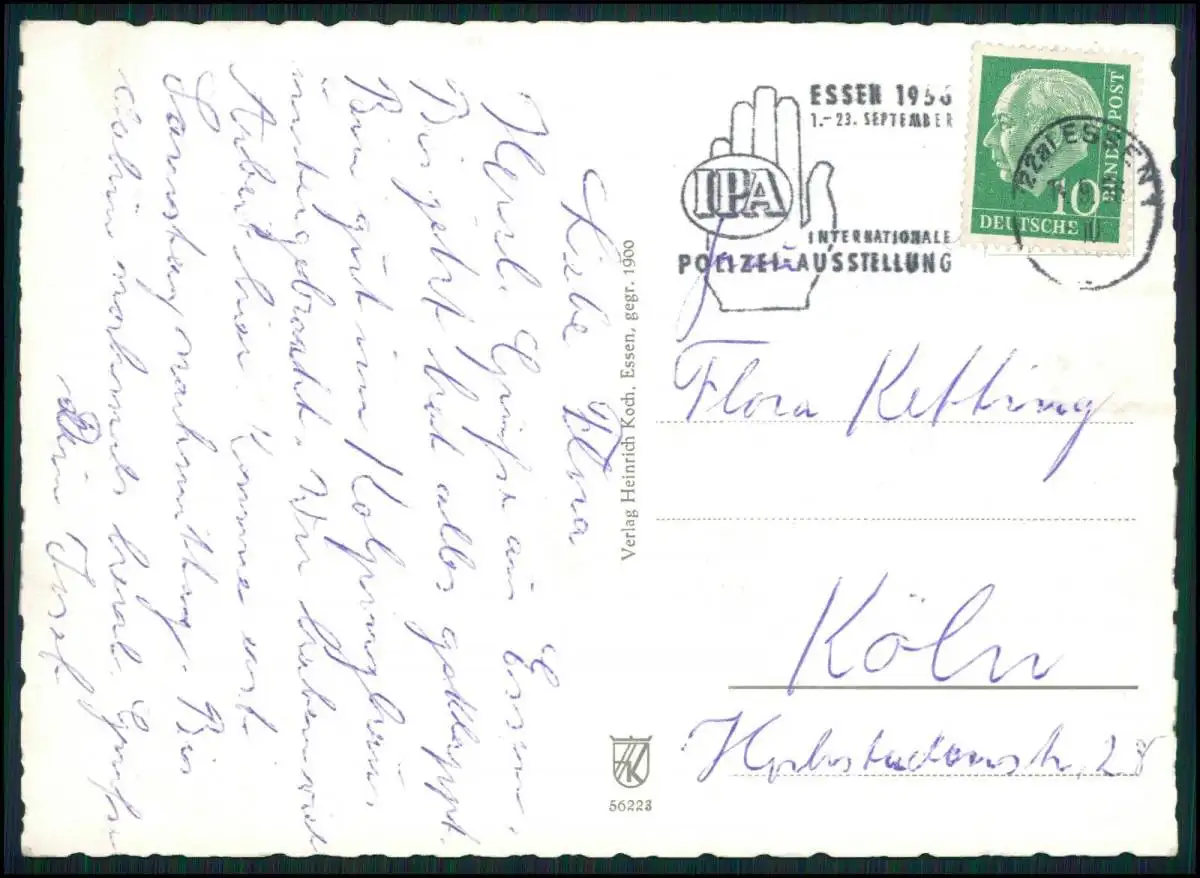 Liebe Flora
Herzl. Grüße aus Essen.
Bis jetzt hat alles geklappt.
Bin gut im Kolpinghaus
untergebracht. Wir haben viel
Arbeit hier. Komme erst
Samstag nachmittag. Bis
dahin nochmals herzl. Grüße
Dein Josef
Verlag Heinrich Koch, Essen, gegr. 1900
HK
56223
ESSEN 1956
1.-23. SEPTEMBER
IPA
INTERNATIONALE
POLIZEI-AUSSTELLUNG
ESSEN 1
DEUTSCHE BUNDESPOST
10
Frau
Flora Ketting
Köln
28